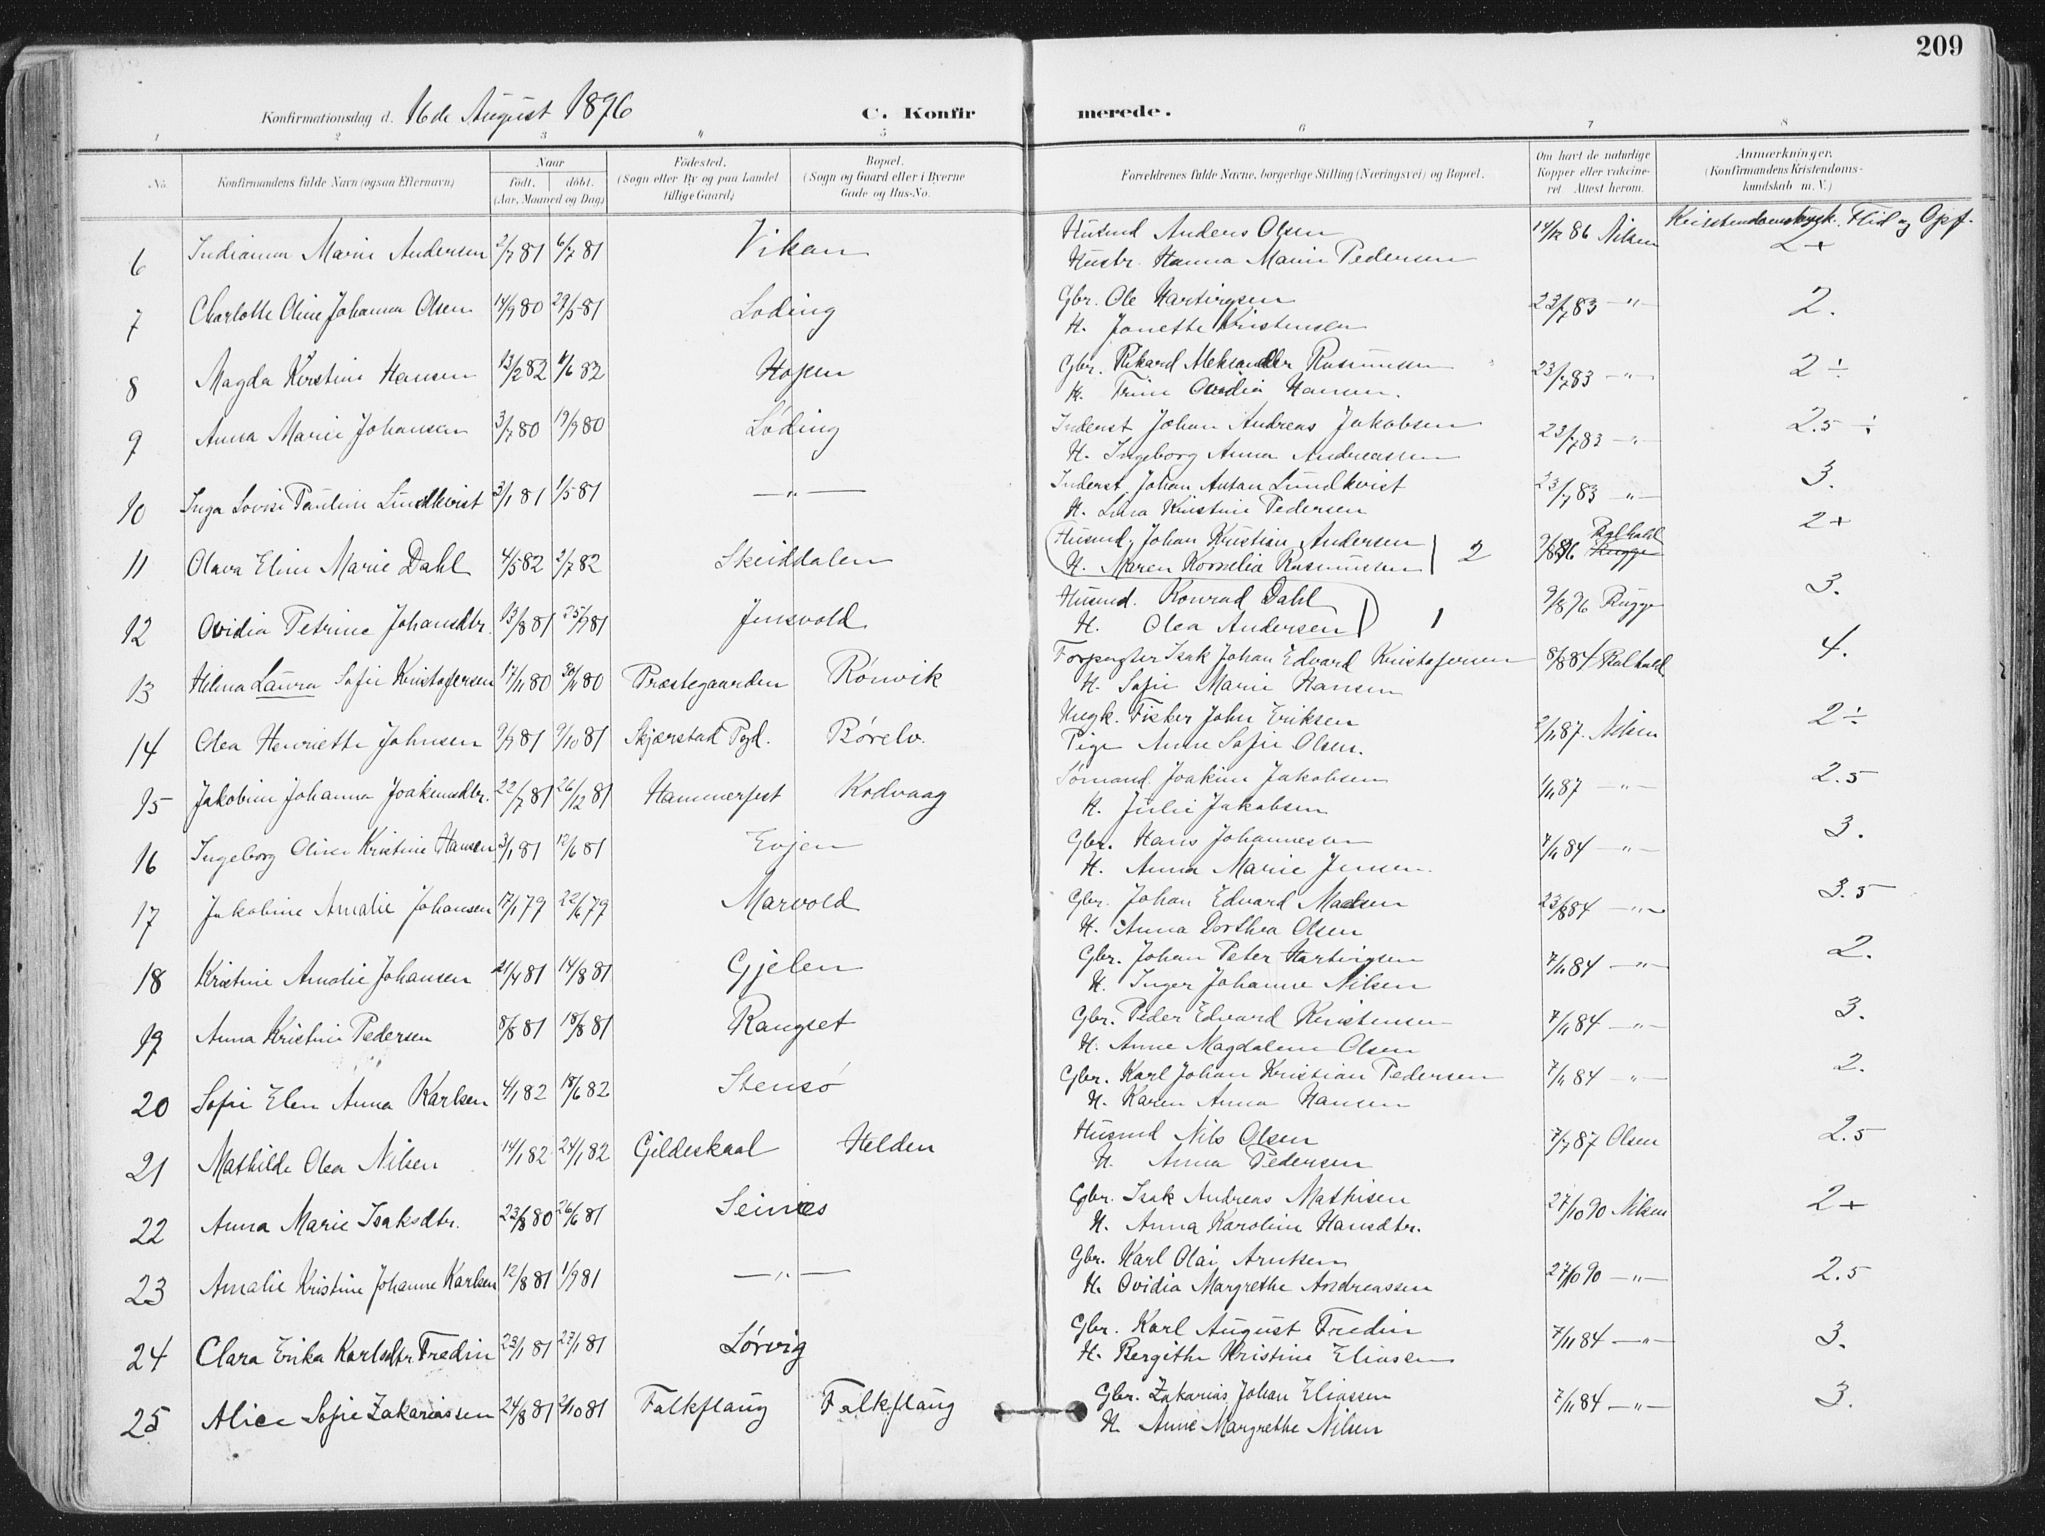 209
Konfirmationsdag d. 16de August 1896 C. Konfirmerede.
1 2 3 " 5 6 7 8
No. Konfirmandens fulde Navn (ogsaa Efternavn) Naar födt. döbt. (Aar, Maaned og Dag) Födested. (Sogn eller By og paa Landet tillige Gaard) Bopæl. (Sogn og Gaard eller i Byerne Gade og Hus-No. Forældrenes fulde Navne, borgerlige Stilling (Næringsvei) og Bopæl. Om havt de naturlige Kopper eller vakcineret. Attest herom. Anmærkninger. (Konfirmandens Kristendomskundskab m. V.)
Kristendomskundsk. Flid og Opf.
6 Indianna Marie Andersen 2/7 81 6/7 81 Vikan Husmd Anders Olsen 14/12 86 Nilsen 2+
Hustr. Hanna Marie Pedersen
7 Charlotte Oline Johanna Olsen 14/9 80 29/5 81 Löding Gbr. Ole Hartvigsen 23/7 83 —"— 2.
H. Janette Kristensen
8 Magda Kirstine Hansen 13/2 82 11/6 82 Hopen Gbr. Rikard Aleksander Rasmussen 23/7 83 —"— 2 ÷
H. Trine Ovidia Hansen.
9 Anna Marie Johansen 3/7 80 19/9 80 Löding Inderst Johan Andreas Jakobsen 23/7 83 —"— 2.5 ÷
H. Ingeborg Anna Andreassen
10 Inga Lovise Pauline Lindkvist 3/1 81 1/5 81 —"— Inderst Johan Antan Lundkvist 23/7 83 —"— 3.
H. Lina Kristine Pedersen
11 Olava Eline Marie Dahl 4/5 82 2/7 82 Skeiddalen Husmd, Johan Kristian Andersen 2 9/8 96 Balhald Rugge 2+
H. Maren Kornelia Rasmussen
12 Ovidia Petrine Johansdtr. 13/8 81 25/9 81 Jensvold Husmd. Konrad Dahl 1 9/8 96 Rugge 3.
H. Olea Andersen
13 Helma Laura Sofie Kristofersen 17/11 80 30/11 80 Præstegaarden Rönvik Forpagter Isak Johan Edvard Kristofersen 8/8 84 Balhald 4.
H. Sofie Marie Hansen
14 Olea Henriette Johnsen 9/9 81 9/10 81 Skjærstad Pgd. Börelv. Ungk. Fisker John Eriksen 2/11 87. Nilsen 2 ÷
Pige Anne Sofie Olsen.
15 Jakobine Johanna Joakimsdtr. 22/7 81 26/12 81 Hammerfest Kodvaag Sömand. Joakim Jakobsen 1/11 87 —"— 2.5
H. Julie Jakobsen
16 Ingeborg Oline Kristine Hansen 3/1 81 12/6 81 Evjen Gbr. Hans Johannessen 7/11 84 —"— 3.
H. Anna Marie Jensen.
17 Jakobine Amalie Johansen 17/1 79 22/6 79 Marvold Gbr. Johan Edvard Madsen 23/8 84 —"— 3.5
H. Anna Dorthea Olsen
18 Kristine Amalie Johansen 21/4 81 14/8 81 Gjelen Gbr. Johan Peter Hartvigsen 7/11 84 —"— 2.
H. Inger Johanne Nilsen
19 Anna Kristine Pedersen 8/5 81 18/8 81 Rangset Gbr. Peder Edvard Kristensen 7/11 84 —"— 3.
H. Anne Magdalene Olsen
20 Sofie Elen Anna Karlsen 4/1 82 18/6 82 Stensö Gbr. Karl Johan Kristian Pedersen 7/11 84 —"— 2.
H. Karen Anna Hansen
21 Mathilde Olea Nilsen 14/1 82 24/1 82 Gildeskaal Helden Husmd Nils Olsen 7/7 87 Olsen 2.5
H. Anna Pedersen
22 Anna Marie Isaksdtr. 23/8 80 26/6 81 Seines Gbr. Isak Andreas Mathisen 27/10 90 Nilsen 2+
H. Anna Karoline Hansdtr.
23 Amalie Kristine Johanne Karlsen 12/8 81 1/9 81 —"— Gbr. Karl Olai Arntsen 27/10 90 —"— 2.5
H. Ovidia Margrethe Andreassen
24 Clara Erika Karlsdtr Fredin 23/1 81 27/1 81 Lörvig Gbr. Karl August Fredin 7/11 84 —"— 3.
H. Bergithe Kristine Eliasen
25 Alice Sofie Zakariassen 24/8 81 2/10 81 Falkflaug Falkflaug Gbr. Zakarias Johan Eliassen 7/11 84 —"— 3.
H. Anne Margrethe Nilsen